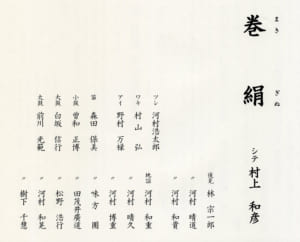 巻絹
まきぎぬ
シテ 村上 和彦
ツレ 河村浩太郎
ワキ 村山 弘
アイ 野村 万禄
笛 森田 保美
小鼓 曽和 正博
大鼓 白坂 信行
太鼓 前川 光範
後見 林 宗一郎
〃 河村 晴道
〃 河村 和貴
地謡 河村 和重
〃 河村 晴久
〃 河村 博重
〃 味方 團
〃 田茂井廣道
〃 松野 浩行
〃 河村 和晃
〃 樹下 千慧